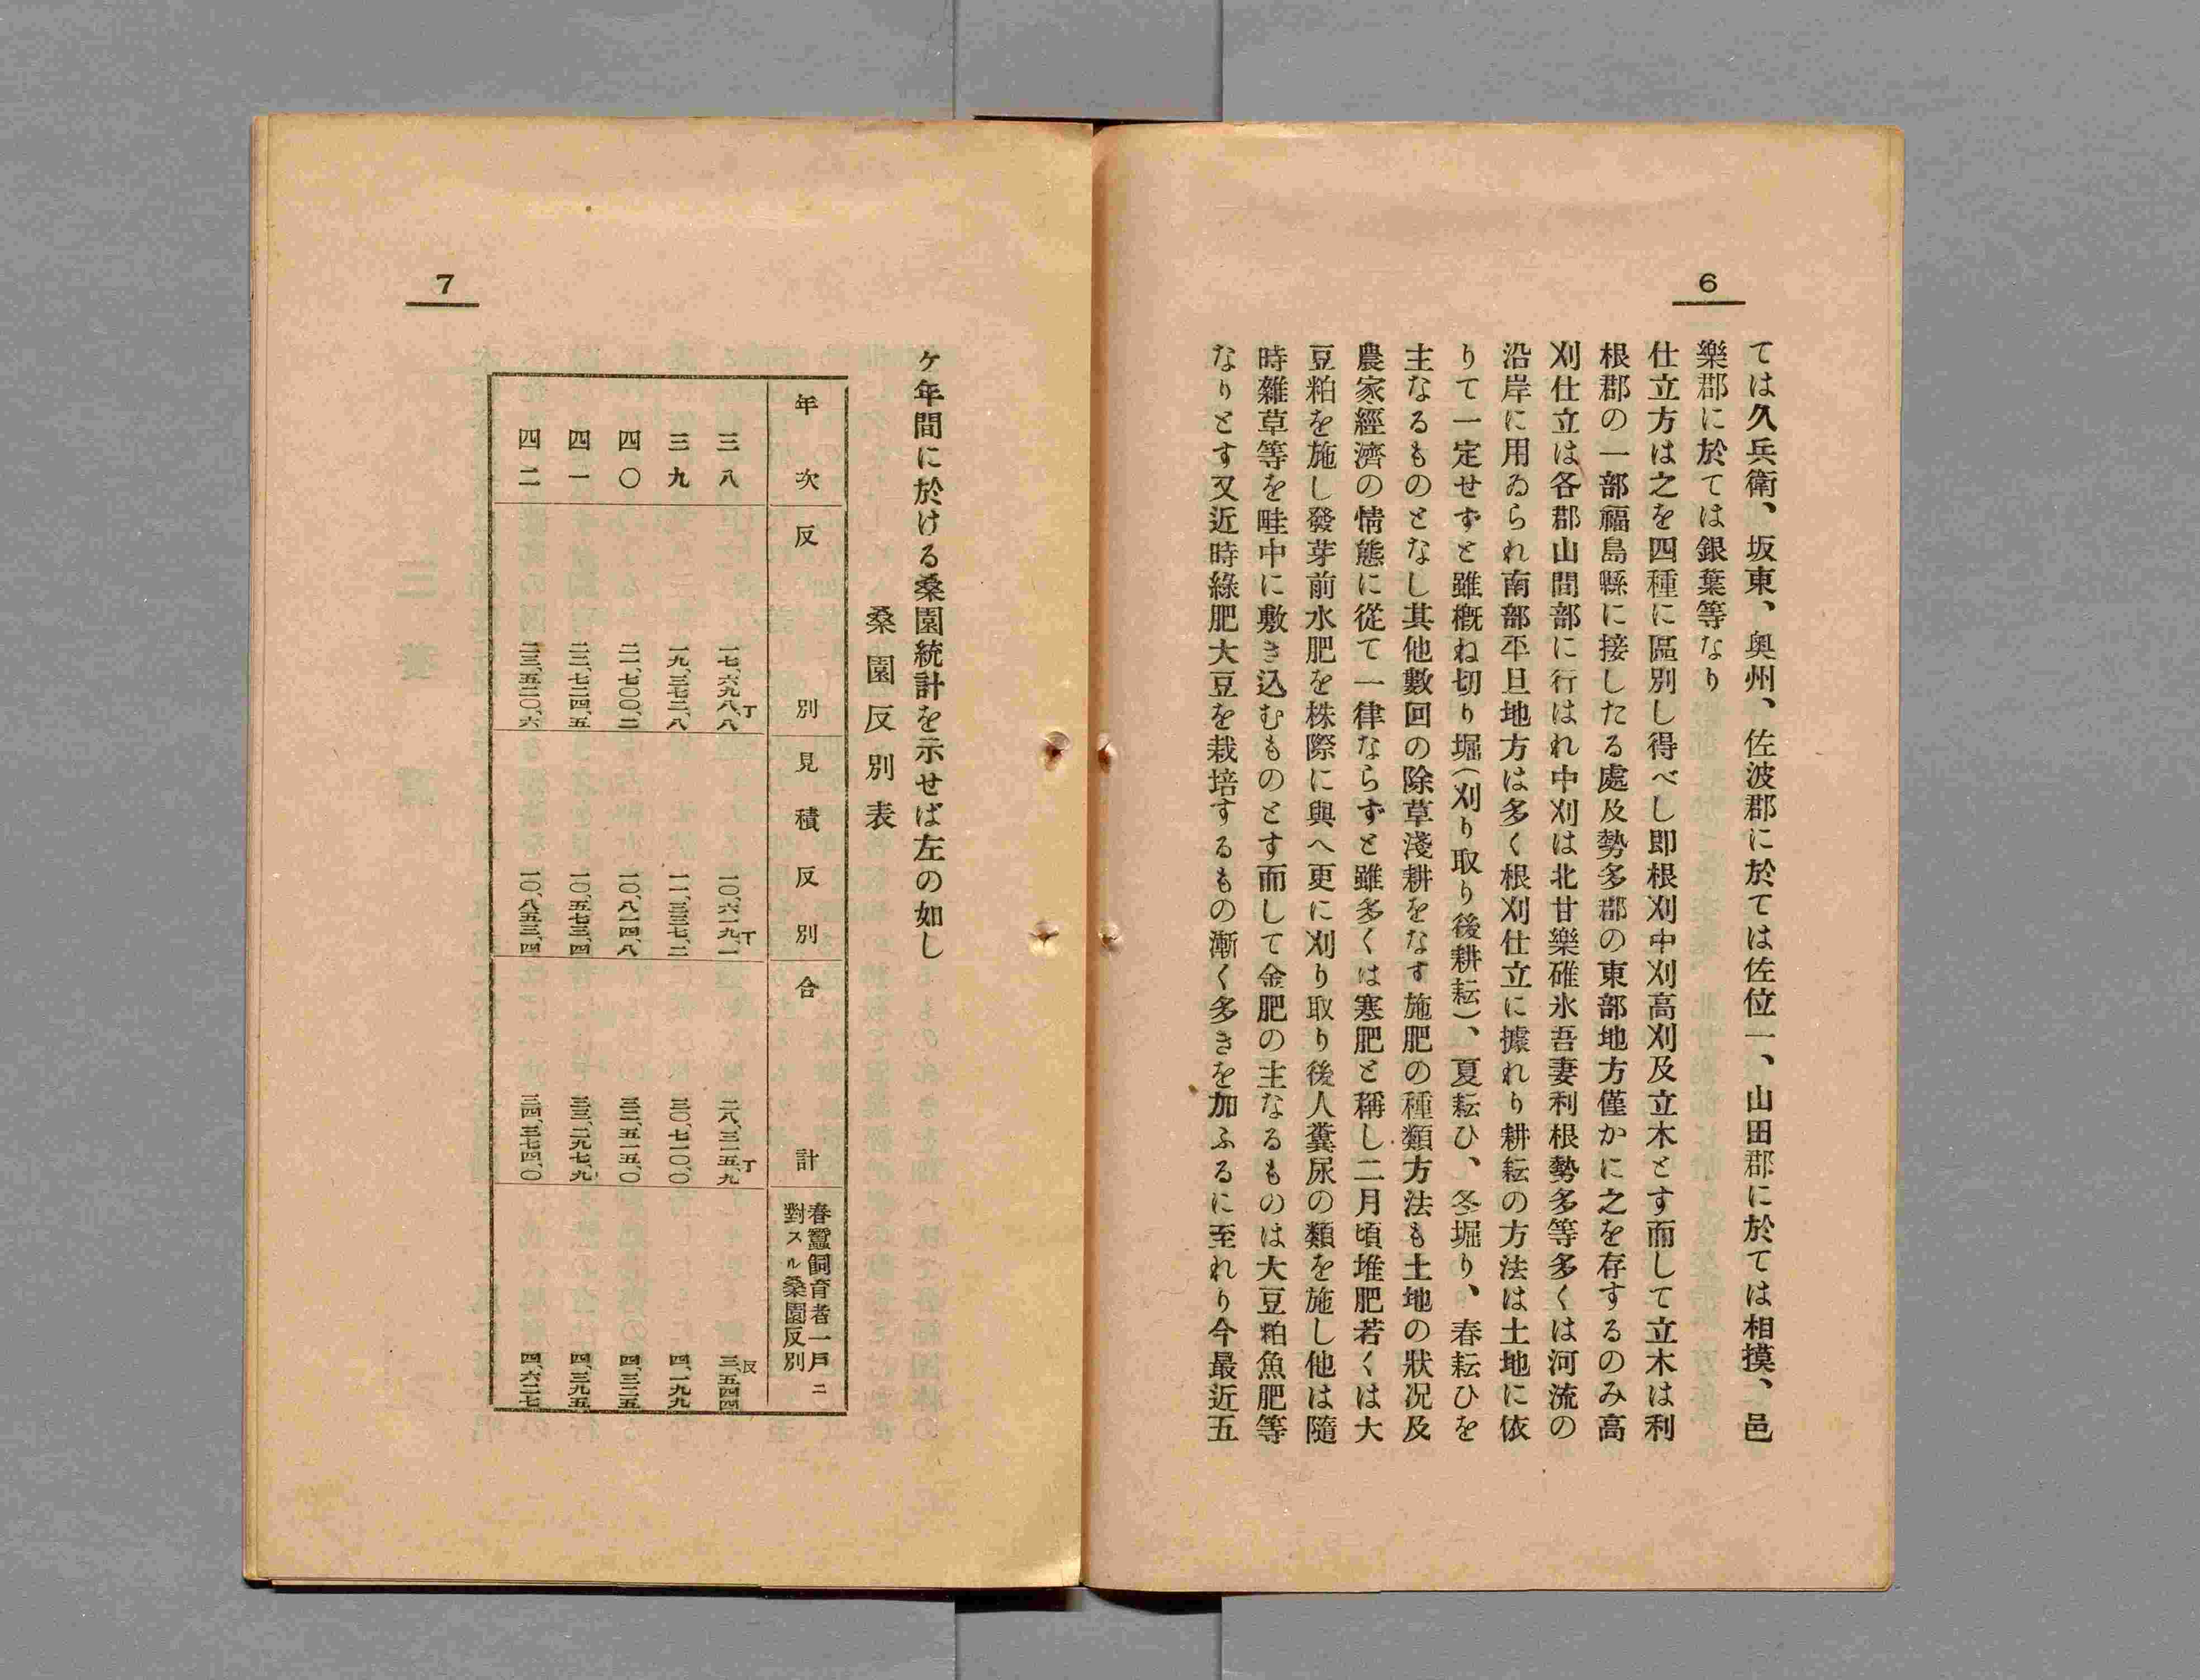 6
ては久兵衛、坂東、奥州、佐波郡に於ては佐位一、山田郡に於ては相摸、邑
樂郡に於ては銀葉等なり
仕立方は之を四種に區別し得べし即根刈中刈高刈及立木とす而して立木は利
根郡の一部福島縣に接したる處及勢多郡の東部地方僅かに之を存するのみ高
刈仕立は各郡山間部に行はれ中刈は北甘樂碓氷吾妻利根勢多等多くは河流の
沿岸に用ゐられ南部平旦地方は多く根刈仕立に據れり耕耘の方法は土地に依
りて一定せずと雖概ね切り堀(刈り取り後耕耘)、夏耘ひ、冬堀り、春耘ひを
主なるものとなし其他數回の除草淺耕をなす施肥の種類方法も土地の狀况及
農家經濟の情態に從て一律ならずと雖多くは寒肥と稱し二月頃堆肥若くは大
豆粕を施し發芽前水肥を株際に與へ更に刈り取り後人糞尿の類を施し他は隨
時雜草等を畦中に敷き込むものとす而して金肥の主なるものは大豆粕魚肥等
なりとす又近時綠肥大豆を栽培するもの漸く多きを加ふるに至れり今最近五
7
ケ年間に於ける桑園統計を示せば左の如し
桑園反別表
年次 反別 見積反別 合計 春蠶飼育者一戶ニ對スル桑園反別
三八 一七、六九八、八丁 一〇、六一九、一丁 二八、三一五、九丁 三、五四四反
三九 一九、三七二、八 一一、三三七、二 三〇、七一〇、〇 四、一九九
四〇 二一、七〇〇、二 一〇、八一四、八 三二、五一五、〇 四、三二五
四一 二二、七二四、五 一〇、五七三、四 三三、二九七、九 四、三九五
四二 二三、五二〇、六 一〇、八五三、四 三四、三七四、〇 四、六二七